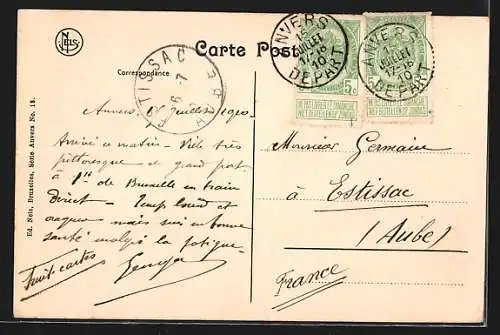 NELS
Carte Post
Correspondance
ESTISSAC
AUBE
ANVERS
15
JUILLET
10
DEPART
ANVERS
15
JUILLET
10
DEPART
5c
5c
NE PAS LIVRER LE DIMANCHE
NIET BESTELLEN OP ZONDAG
NE PAS LIVRER LE DIMANCHE
NIET BESTELLEN OP ZONDAG
Anvers Juillet 1910
Arrivé ce matin - Ville très
pittoresque et grand port
à 1h de Bruxelle en train
direct - Temps lourd et
mais suis en bonne
santé malgré la fatigue.
Monsieur Germaine
à Estissac
(Aube)
France
Ed. Nels, Bruxelles, Série Anvers No. 18.